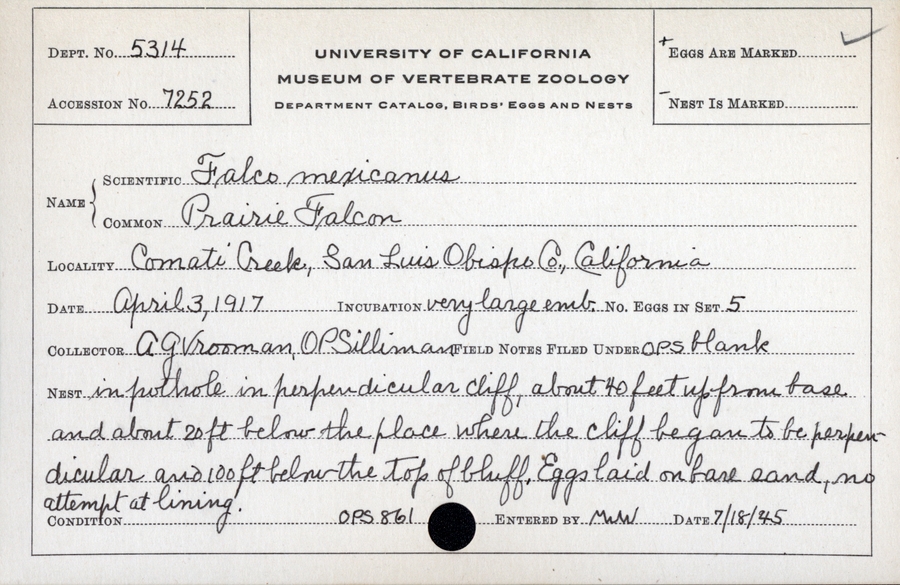 DEPT. No. 5314
ACCESSION No. 7252
UNIVERSITY OF CALIFORNIA
MUSEUM OF VERTEBRATE ZOOLOGY
DEPARTMENT CATALOG, BIRDS' EGGS AND NESTS
+ EGGS ARE MARKED ✓
- NEST IS MARKED
NAME
SCIENTIFIC Falco mexicanus
COMMON Prairie Falcon
LOCALITY Comati Creek, San Luis Obispo Co., California
DATE April 3, 1917 INCUBATION very large emb. No. EGGS IN SET 5
COLLECTOR A G Vrooman, O P Silliman FIELD NOTES FILED UNDER OPS blank
NEST in pothole in perpendicular cliff, about 40 feet up from base
and about 20 ft below the place where the cliff began to be perpen-
dicular and 100 ft below the top of bluff. Eggs laid on bare sand, no
attempt at lining.
CONDITION OPS 861 ENTERED BY MWW DATE 7/18/45